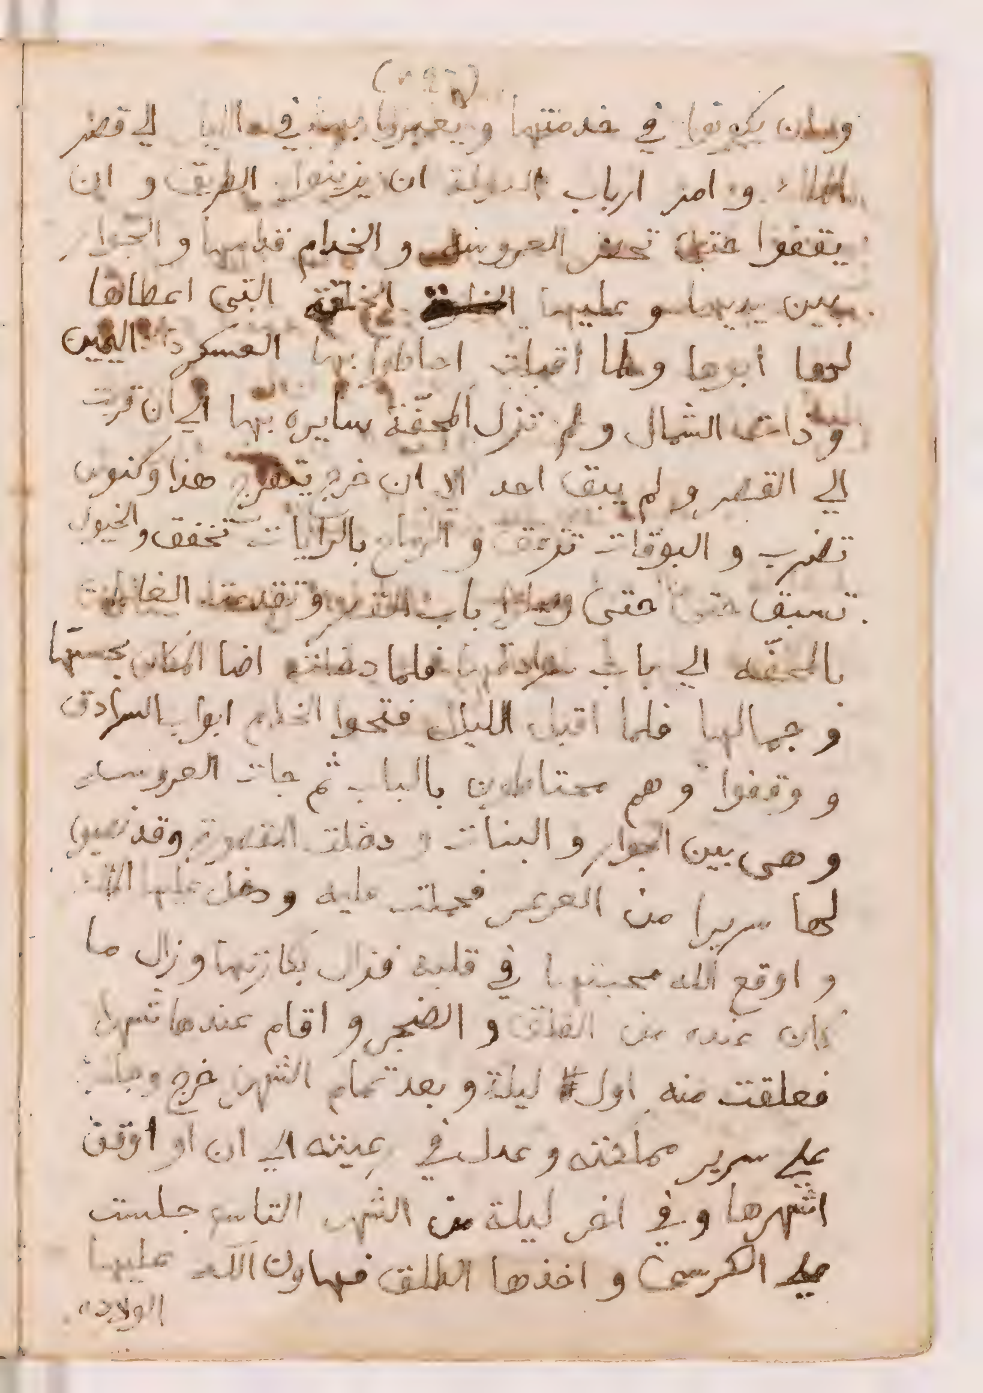 وان يكونوا في خدمتها ويعبروا بها في الليل الي قصر
الملك و امر ارباب الدولة ان يزينوا الطريق و ان
يقفوا حتي تحضر العروسه و الخدام قدامها و الجوار
بين يديها و عليها الخلعة التي اعطاها
لها ابوها ولما اقبلت احاطوا بها العسكر ذات اليمين
و ذات الشمال و لم تزل المحفّة سايره بها الي ان قربت
الي القصر و لم يبق احد الا ان خرج يتفرج هذا وكنوس
تضرب و البوقات تزعق و الرماح بالرايات تخفق والخيول
تسبق حتي حتي وصلوا باب القصر وتقدمت الغلمان
بالمحفّه الي باب سرادقها فلما دخلت اضا المكان بحسنها
و جمالها فلما اقبل الليل فتحوا الخدام ابواب السرادق
و وقفوا وهم محتاطون بالباب ثم جات العروسه
و هي بين الجوار و البنات و دخلت القصورة وقد نصبوا
لها سريرا من العرعر فجلست عليه ودخل عليها الملك
و اوقع الله محبتها في قلبه فزال بكارتها و زال ما
كان عنده من القلق و الضجر و اقام عندها شهرا
فعلقت منه اول ليلة و بعد تمام الشهر خرج وجلس
علي سرير مملكته و عدل في رعيته الي ان اوقفت
اشهرها و في اخر ليلة من الشهر التاسع جلست
علي الكرسي و اخذها الطلق فهاون الله عليها
الولادة